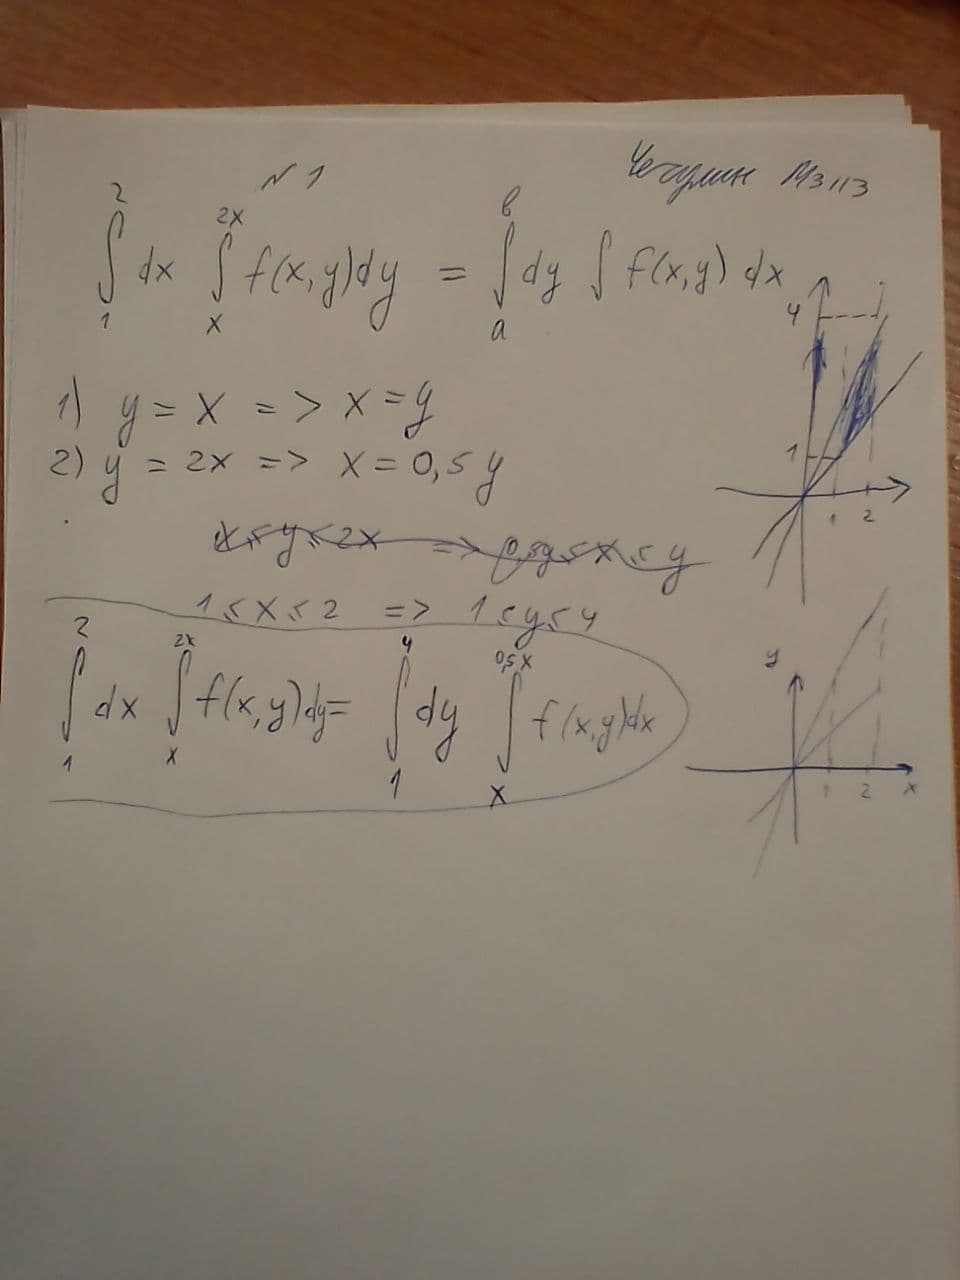 N 1
Чегулин М3113
∫₁² dx ∫ₓ²ˣ f(x,y)dy = ∫ₐᵇ dy ∫ f(x,y) dx
1) y = x => x = y
2) y = 2x => x = 0,5 y
x ≤ y ≤ 2x => 0,5y ≤ x ≤ y
1 ≤ x ≤ 2 => 1 ≤ y ≤ 4
∫₁² dx ∫ₓ²ˣ f(x,y)dy = ∫₁⁴ dy ∫ₓ⁰,⁵ˣ f(x,y)dx
4
1
1 2
y
1 2 x